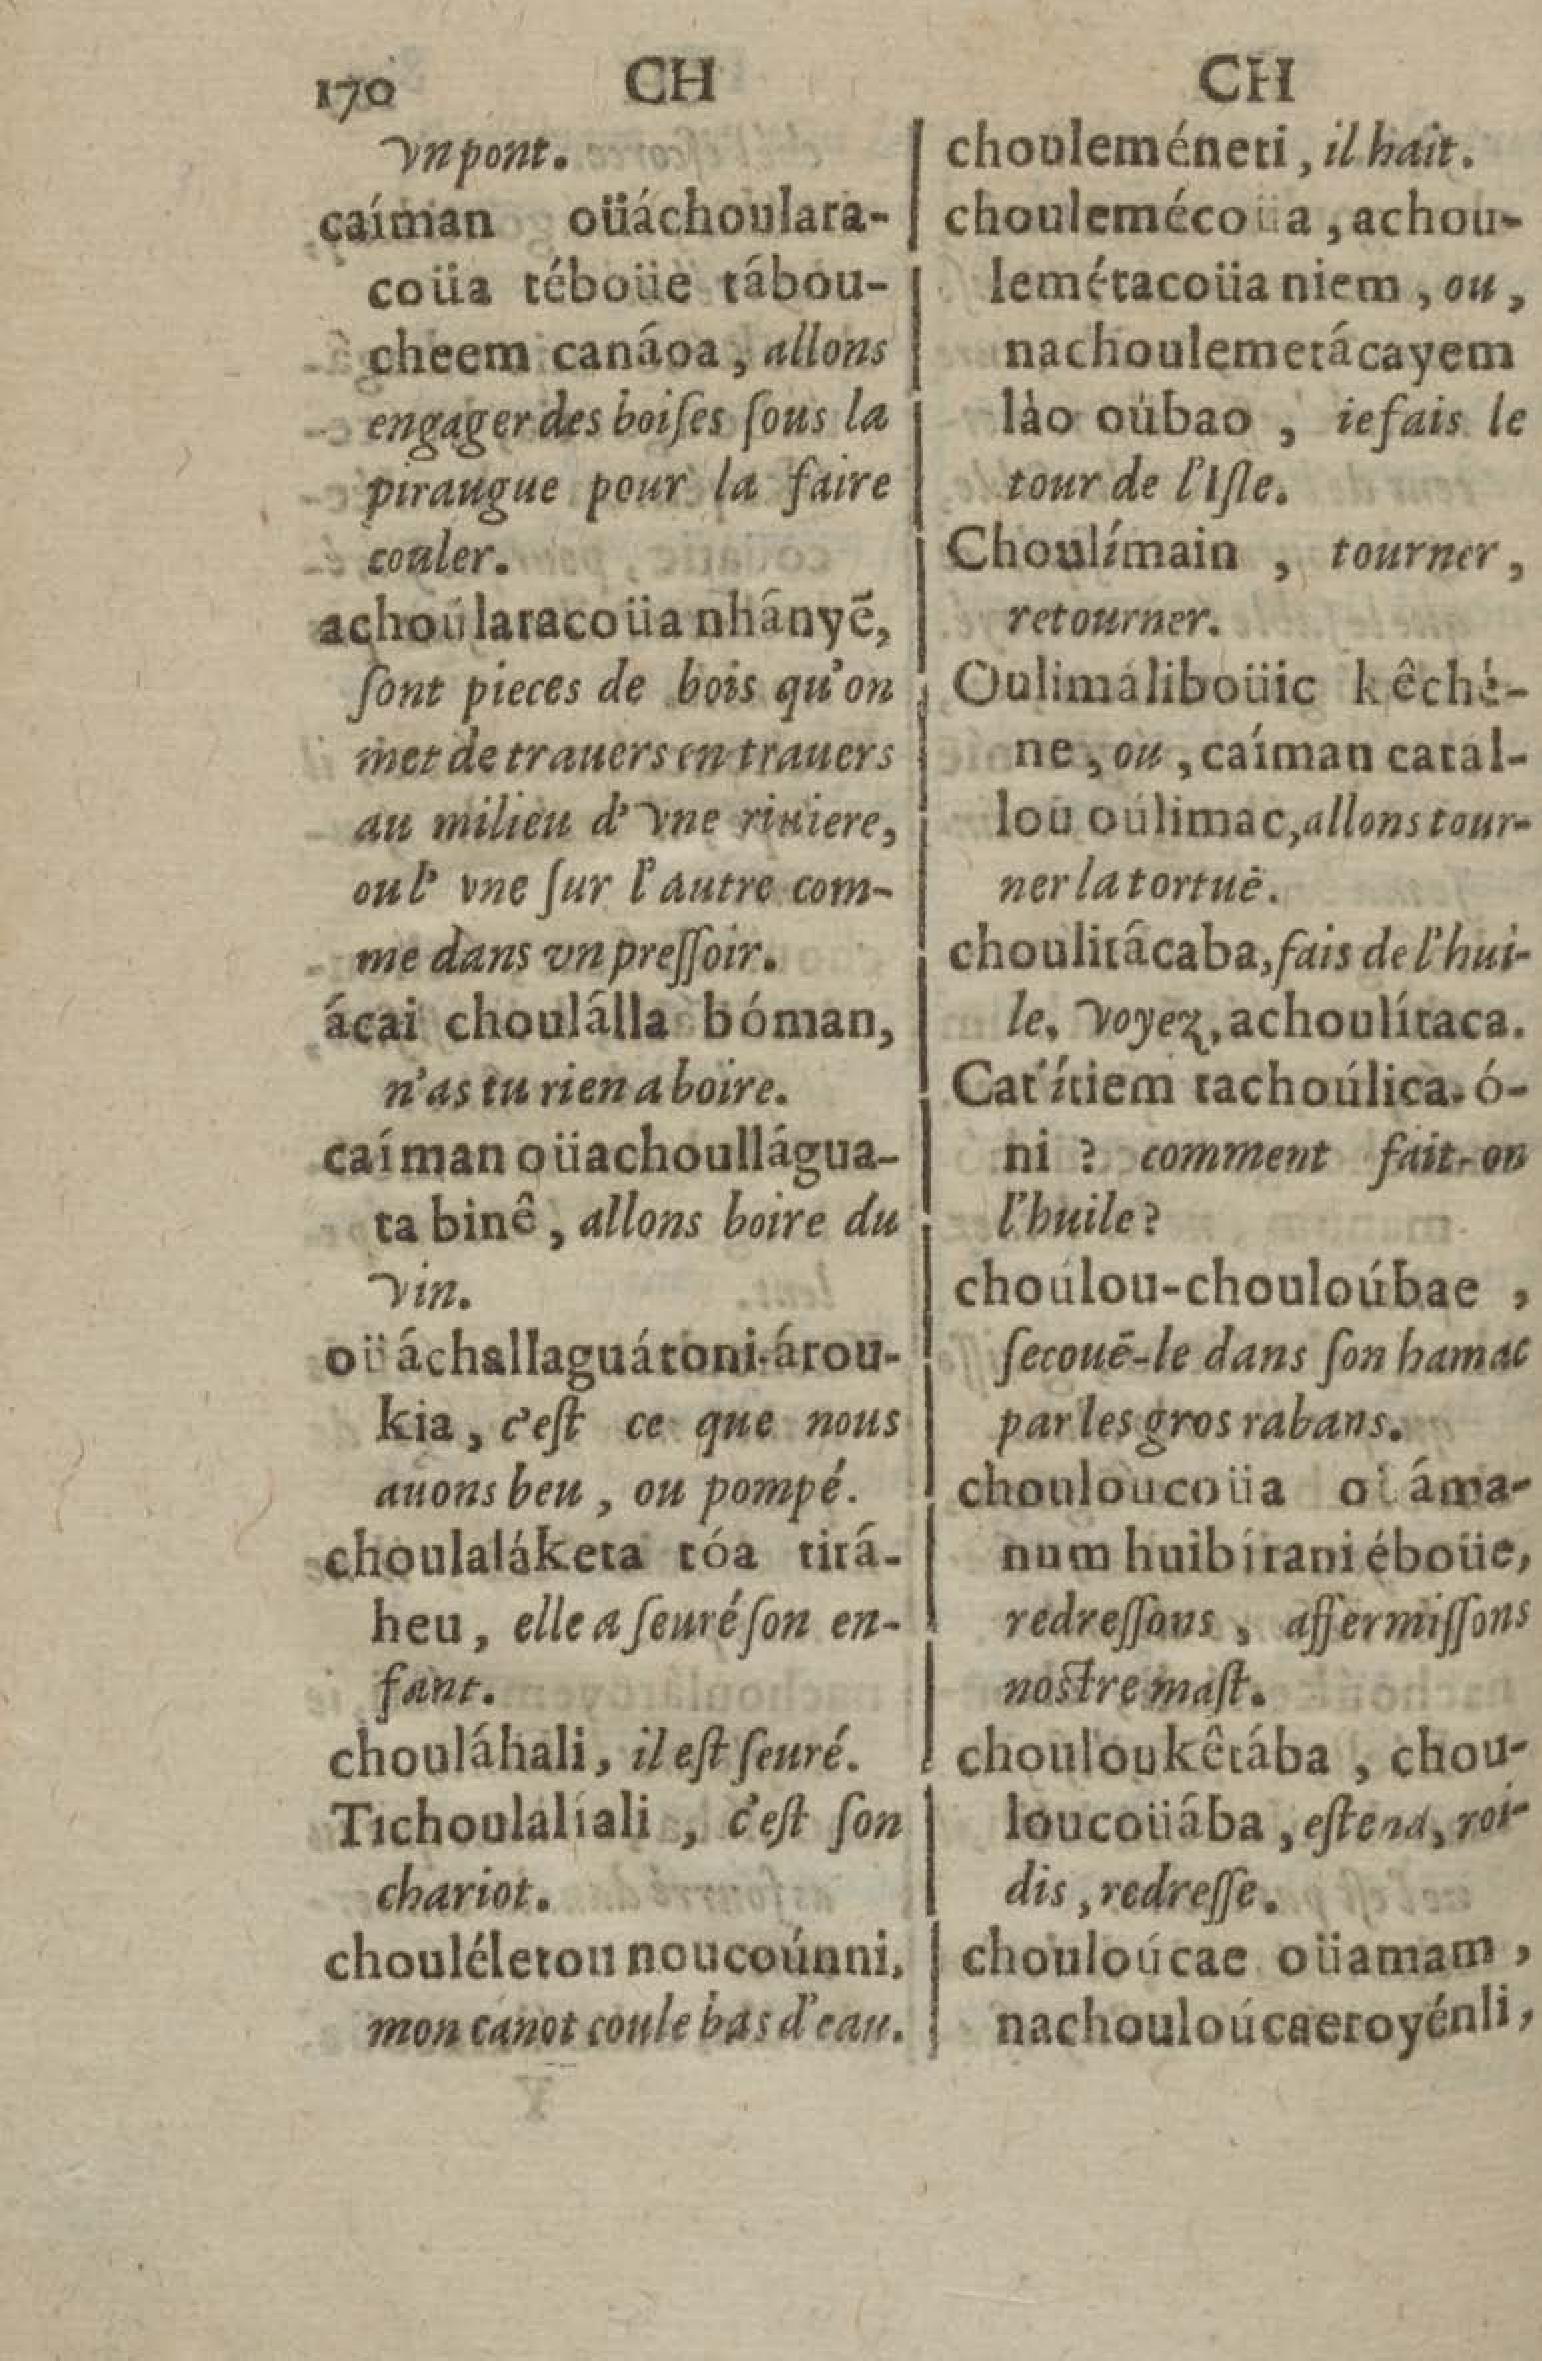 170 CH CH
vn pont.
caíman oüáchoulara-
coüa téboüe tábou-
cheem canáoa, allons
engager des boiſes ſous la
piraugue pour la faire
couler.
achoúlaracoüa nhányẽ,
ſont pieces de bois qu'on
met de trauers en trauers
au milieu d'vne riuiere,
ou l'vne ſur l'autre com-
me dans vn preſſoir.
ácai choulálla bóman,
n'as tu rien a boire.
caíman oüachoullágua-
ta binê, allons boire du
vin.
oüáchallaguátoni-árou-
kia, c'eſt ce que nous
auons beu, ou pompé.
choulaláketa tóa tirá-
heu, elle a ſeuré ſon en-
fant.
chouláhali, il eſt ſeuré.
Tichoulalíali, c'eſt ſon
chariot.
chouléletou noucoúnni,
mon canot coule bas d'eau.
chouleméneti, il hait.
choulemécoüa, achou-
lemétacoüa niem, ou,
nachoulemetácayem
láo oúbao, ie fais le
tour de l'Iſle.
Choulímain, tourner,
retourner.
Oulimáliboüic kêché-
ne, ou, caíman catál-
lou oúlimac, allons tour-
ner la tortuë.
choulitâcaba, fais de l'hui-
le, voyez, achoulítaca.
Cat'ítiem tachoúlica. ó-
ni ? comment fait-on
l'huile ?
choúlou-chouloúbae,
ſecouë-le dans ſon hamac
par les gros rabans.
chouloucoüa oüáma-
num huibítani éboüe,
redreſſons, affermiſſons
noſtre maſt.
chouloukêtába, chou-
loucoüába, eſtend, roi-
dis, redreſſe.
chouloúcae oüamam,
nachouloúcaeroyénli,